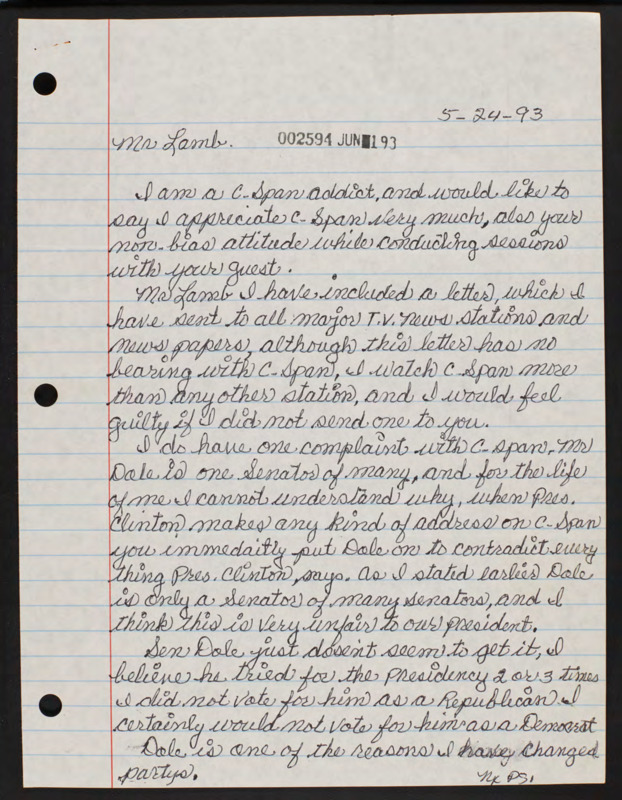 5-24-93
Mr Lamb.
002594 JUN 1 93
I am a C-Span addict, and would like to
say I appreciate C-Span very much, also your
non-bias attitude while conducting sessions
with your guest.
Mr Lamb I have included a letter, which I
have sent to all major T.V. news stations and
news papers, although this letter has no
bearing with C-Span, I watch C-Span more
than any other station, and I would feel
guilty if I did not send one to you.
I do have one complaint with C-Span. Mr
Dole is one Senator of many, and for the life
of me I cannot understand why, when Pres.
Clinton makes any kind of address on C-Span
you immedaitly put Dole on to contradict every
thing Pres. Clinton, says. As I stated earlier Dole
is only a Senator of many senators, and I
think this is very unfair to our president.
Sen Dole just dosent seem to get it, I
believe he tried for the presidency 2 or 3 times
I did not vote for him as a Republican I
certainly would not vote for him as a Democrat
Dole is one of the reasons I have changed
partys.
Nx PS.